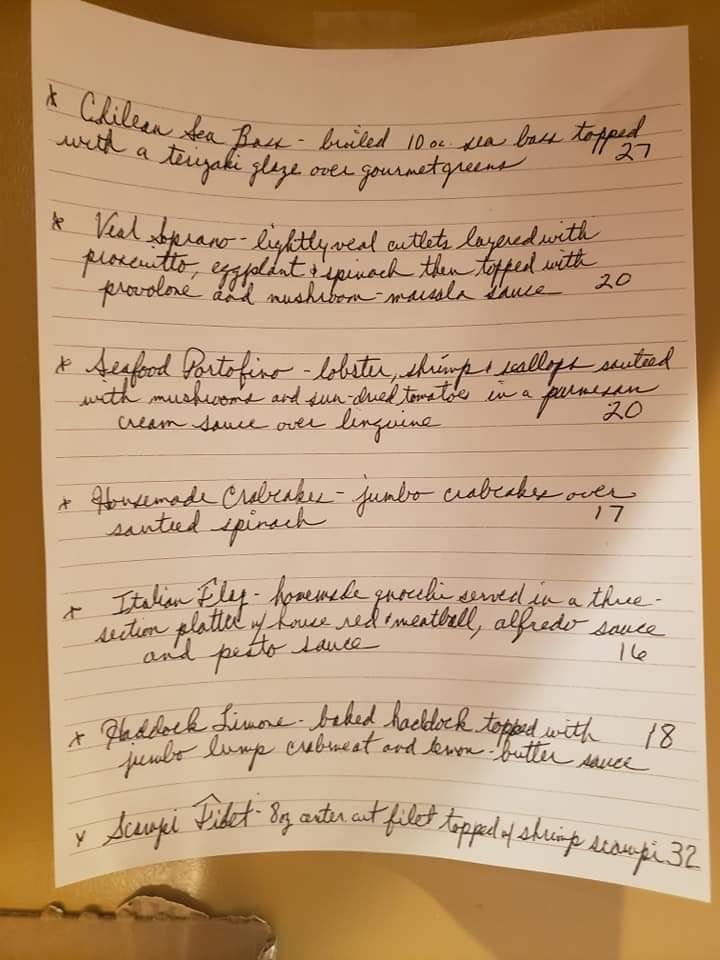 * Chilean Sea Bass - broiled 10 oz. sea bass topped
with a teriyaki glaze over gourmet greens 27
* Veal Soprano - lightly veal cutlets layered with
proscuitto, eggplant & spinach then topped with
provolone and mushroom-marsala sauce 20
* Seafood Portofino - lobster, shrimp & scallops sauteed
with mushrooms and sun-dried tomatoes in a parmesan
cream sauce over linguine 20
* Housemade Crabcakes - jumbo crabcakes over
sauteed spinach 17
* Italian Flag - homemade gnocchi served in a three-
section platter w/ house red & meatball, alfredo sauce
and pesto sauce 16
* Haddock Limone - baked haddock topped with 18
jumbo lump crabmeat and lemon-butter sauce
* Scampi Filet - 8oz center cut filet topped w/ shrimp scampi 32